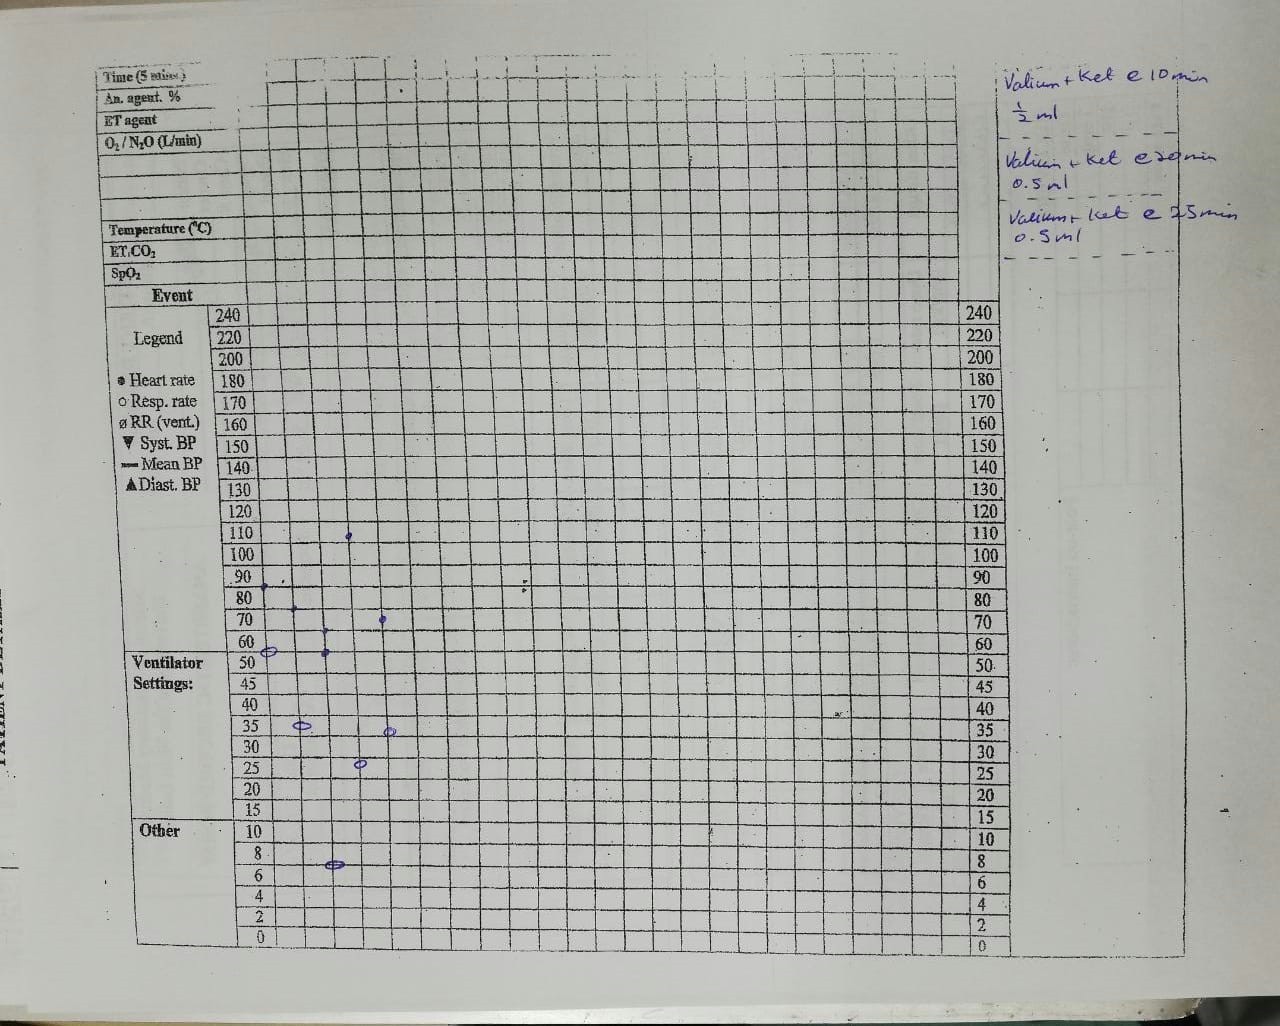 Time (5 mins.)
An. agent. %
ET agent
O₂ / N₂O (L/min)
Temperature (°C)
ET.CO₂
SpO₂
Event
Legend
● Heart rate
○ Resp. rate
ø RR (vent.)
▼ Syst. BP
— Mean BP
▲ Diast. BP
Ventilator
Settings:
Other
240
220
200
180
170
160
150
140
130
120
110
100
90
80
70
60
50
45
40
35
30
25
20
15
10
8
6
4
2
0
240
220
200
180
170
160
150
140
130
120
110
100
90
80
70
60
50
45
40
35
30
25
20
15
10
8
6
4
2
0
Valium + Ket @ 10 min
½ ml
Valium + Ket @ 20 min
0.5 ml
Valium + Ket @ 25 min
0.5 ml